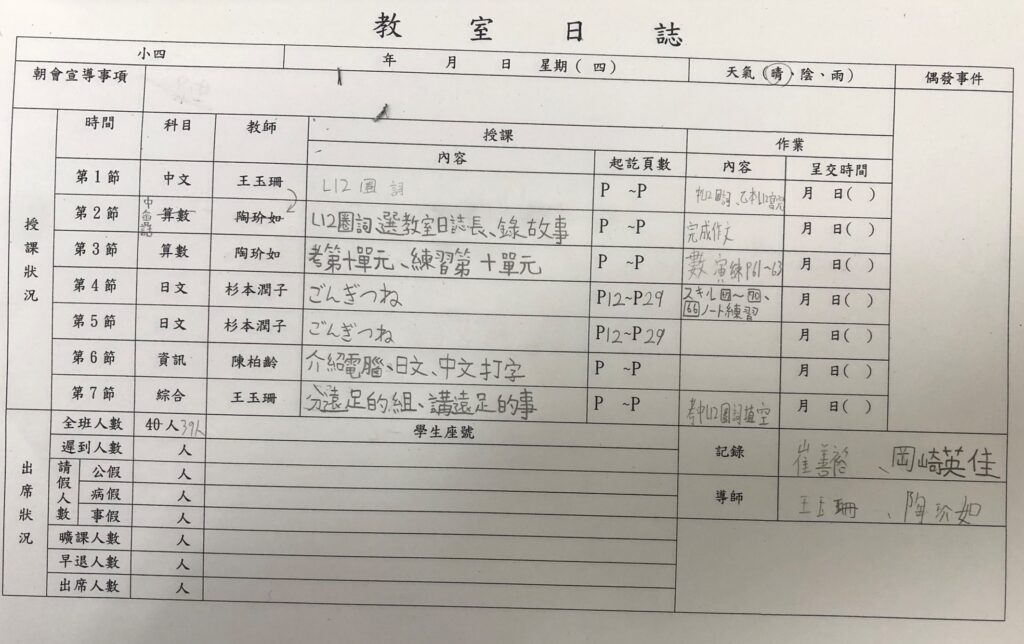 教室日誌
小四 年 月 日 星期(四) 天氣(晴、陰、雨) 偶發事件
朝會宣導事項
授課狀況 時間 科目 教師 授課 作業
內容 起訖頁數 內容 呈交時間
第1節 中文 王玉珊 L12圈詞 P ~P L12圈詞、 月 日( )
第2節 算數 陶玠如 L12圈詞選教室日誌長、錄故事 P ~P 完成作文 月 日( )
第3節 算數 陶玠如 考第十單元、練習第十單元 P ~P 數 演練P61~63 月 日( )
第4節 日文 杉本潤子 ごんぎつね P12~P29 スキル69~70、 月 日( )
66ノート練習
第5節 日文 杉本潤子 ごんぎつね P12~P29 月 日( )
第6節 資訊 陳柏齡 介紹電腦、日文、中文打字 P ~P 月 日( )
第7節 綜合 王玉珊 分遠足的組、講遠足的事 P ~P 考中L12圈詞填空 月 日( )
出席狀況 全班人數 40人 39人 學生座號 記錄 崔善裕、岡崎英佳
遲到人數 人
請假人數 公假 人
病假 人 導師 王玉珊、陶玠如
事假 人
曠課人數 人
早退人數 人
出席人數 人